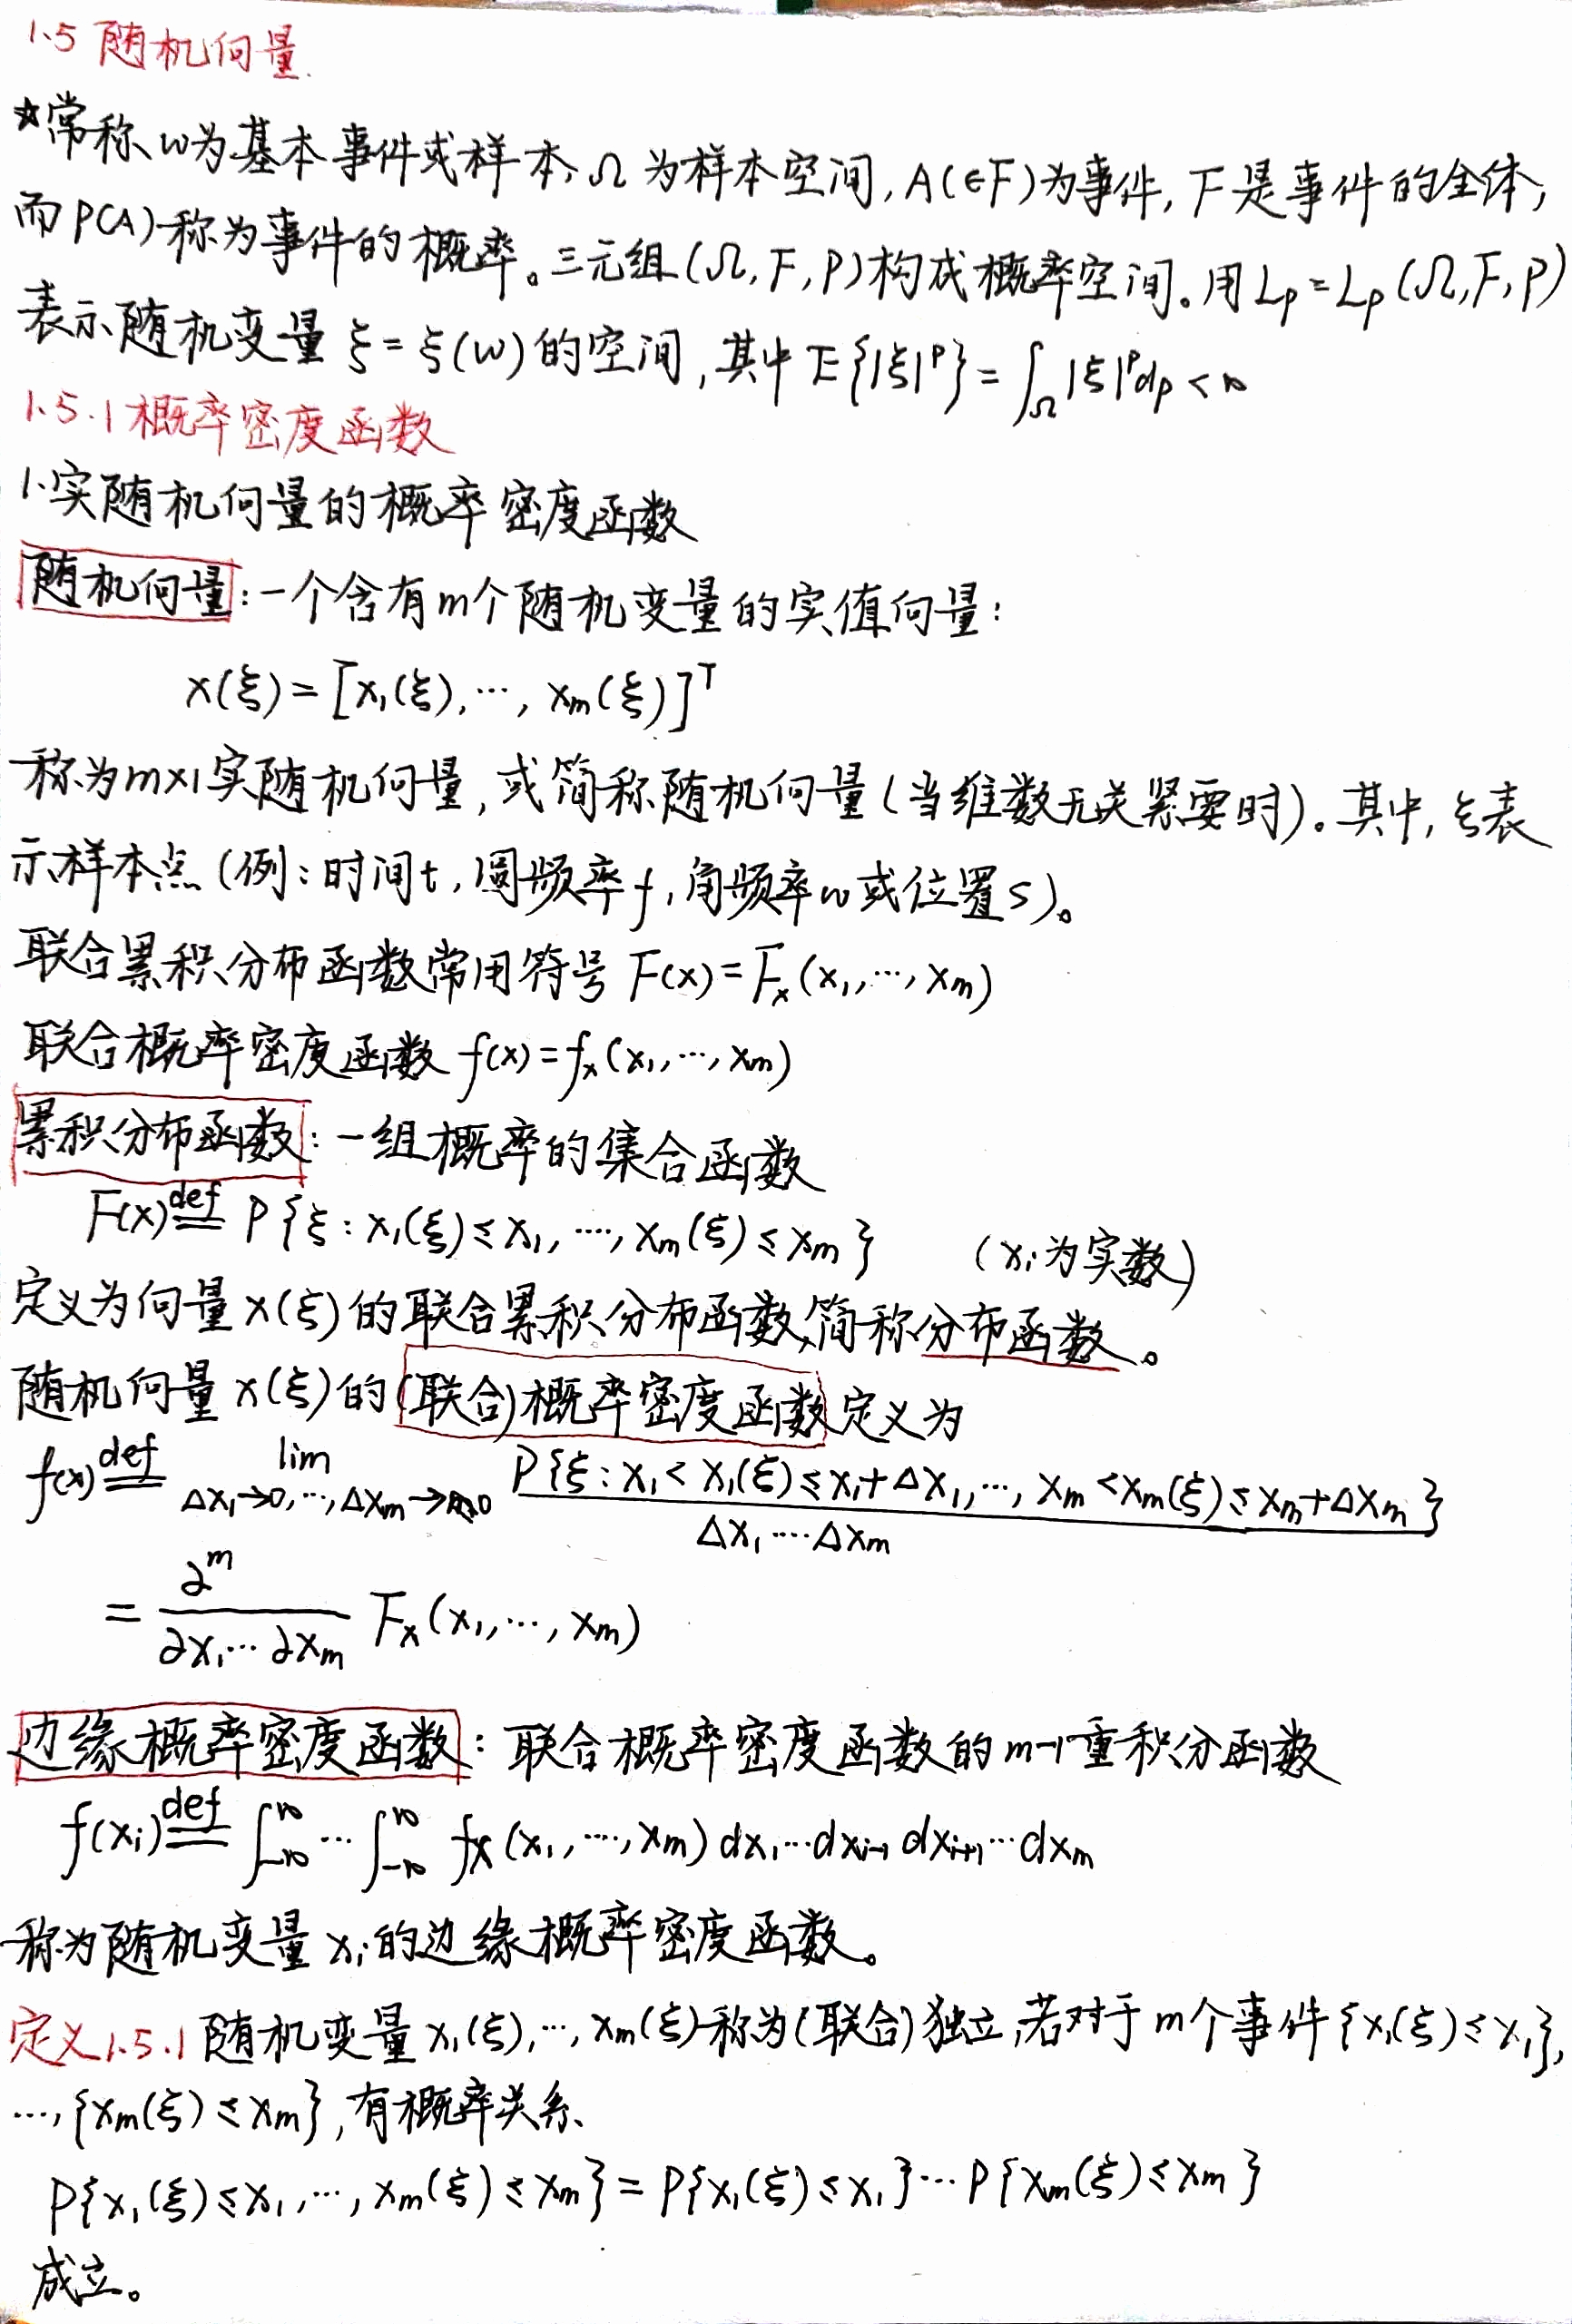 1.5 随机向量.
☆常称w为基本事件或样本,Ω为样本空间,A(∈F)为事件,F是事件的全体,
而P(A)称为事件的概率。三元组(Ω,F,P)构成概率空间。用Lp=Lp(Ω,F,P)
表示随机变量ξ=ξ(w)的空间,其中E{|ξ|^p}=∫_Ω|ξ|^p dp<∞
1.5.1概率密度函数
1.实随机向量的概率密度函数
随机向量:一个含有m个随机变量的实值向量:
x(ξ)=[x₁(ξ),…,xₘ(ξ)]ᵀ
称为m×1实随机向量,或简称随机向量(当维数无关紧要时)。其中,ξ表
示样本点(例:时间t,圆频率f,角频率w或位置s)。
联合累积分布函数常用符号 F(x)=Fₓ(x₁,…,xₘ)
联合概率密度函数 f(x)=fₓ(x₁,…,xₘ)
累积分布函数:一组概率的集合函数
F(x) def= P{ξ:x₁(ξ)≤x₁,…,xₘ(ξ)≤xₘ} (xᵢ为实数)
定义为向量x(ξ)的联合累积分布函数,简称分布函数。
随机向量x(ξ)的(联合)概率密度函数定义为
f(x) def= lim_{Δx₁→0,…,Δxₘ→0} P{ξ:x₁<x₁(ξ)≤x₁+Δx₁,…,xₘ<xₘ(ξ)≤xₘ+Δxₘ} / Δx₁…Δxₘ
= ∂ᵐ/∂x₁…∂xₘ Fₓ(x₁,…,xₘ)
边缘概率密度函数:联合概率密度函数的m-1重积分函数
f(xᵢ) def= ∫_{-∞}^{∞}…∫_{-∞}^{∞} fₓ(x₁,…,xₘ)dx₁…dxᵢ₋₁dxᵢ₊₁…dxₘ
称为随机变量xᵢ的边缘概率密度函数。
定义1.5.1 随机变量x₁(ξ),…,xₘ(ξ)称为(联合)独立,若对于m个事件{x₁(ξ)≤x₁},
…,{xₘ(ξ)≤xₘ},有概率关系
P{x₁(ξ)≤x₁,…,xₘ(ξ)≤xₘ}=P{x₁(ξ)≤x₁}…P{xₘ(ξ)≤xₘ}
成立。